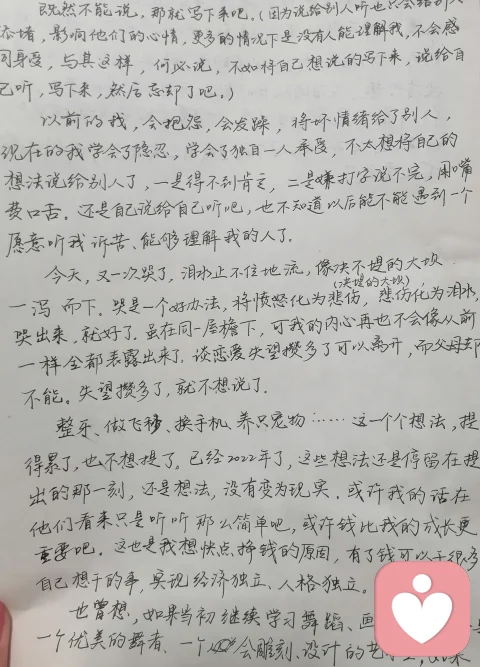 既然不能说,那就写下来吧。(因为说给别人听也只会给别人
添堵,影响他们的心情,更多的情况下是没有人能理解我,不会感
同身受,与其这样,何必说,不如将自己想说的写下来,说给自
己听,写下来,然后忘却了吧。)
以前的我,会抱怨,会发躁,将坏情绪给了别人,
现在的我学会了隐忍,学会了独自一人承受,不太想将自己的
想法说给别人了,一是得不到肯定,二是嫌打字说不完,用嘴
费口舌。还是自己说给自己听吧,也不知道以后能不能遇到一个
愿意听我诉苦、能够理解我的人了。
今天,又一次哭了,泪水止不住地流,像决不堤的大坝
(决堤的大坝)
一泻而下。哭是一个好办法,将愤怒化为悲伤,悲伤化为泪水,
哭出来,就好了。虽在同一屋檐下,可我的内心再也不会像从前
一样全都表露出来了。谈恋爱失望攒多了可以离开,而父母却
不能。失望攒多了,就不想说了。
整牙、做飞秒、换手机、养只宠物……这一个个想法,提
得累了,也不想提了。已经2022年了,这些想法还是停留在提
出的那一刻,还是想法,没有变为现实。或许我的话在
他们看来只是听听那么简单吧,或许钱比我的成长更
重要吧。这也是我想快点挣钱的原因,有了钱可以干很多
自己想干的事,实现经济独立、人格独立。
也曾想,如果当初继续学习舞蹈、画
一个优美的舞者、一个会雕刻、设计的艺